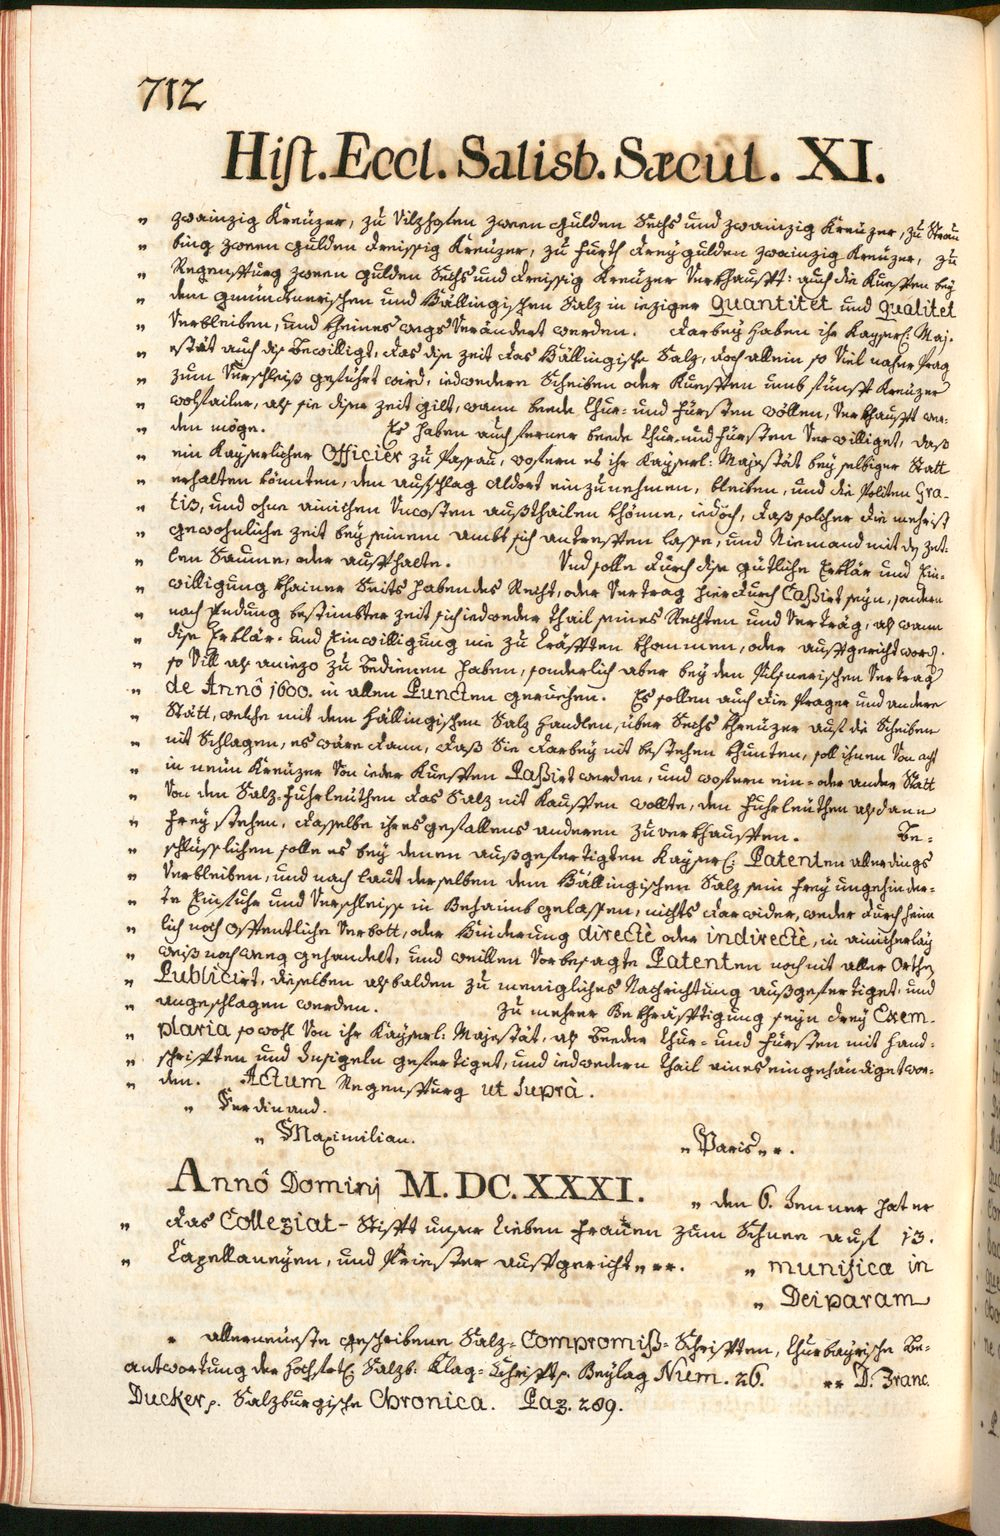 712
Hist. Eccl. Salisb. Sæcul. XI.
„ zwainzig Kreüzer, zu Vilzhofen zween gulden Sechs und zwainzig Kreüzer, zu Strau
„ bing zween gulden dreissig Kreüzer, zu Furth drey gulden zwainzig Kreüzer, zu
„ Regenspurg zween gulden Sechs und dreissig Kreüzer Verkhaufft: auch die Kueffen bey
„ dem gmündnerischen und Hällingischen Salz in ieziger quantitet und qualitet
„ Verbleiben, und kheines wegs Verändert werden. darbey haben ihr Kayserl: Maj.
„ estät auch dis Bewilligt, das dise zeit das Hällingische Salz, doch allein so Viel naher Prag
„ zum Verschleiß geführt wird, iedwedere Scheiben oder Kueffen umb fünff Kreüzer
„ wolfailer, als sie diser zeit gilt, wann beede Chur- und Fürsten wöllen, Verkhaufft wer-
„ den möge. Es haben auch ferner beede Chur- und Fürsten Verwilliget, daß
„ ein Kayserlicher Officier zu Passau, wofern es ihr Kayserl: Majestät bey selbiger Statt
„ erhalten könnten, den aufschlag aldort einzunehmen, bleiben, und die Politen Gra-
„ tis, und ohne ainichen Uncosten außthailen khönne, iedoch, daß solcher die mehrist
„ gewohnliche zeit bey seinem ambt sich antreffen lasse, und Niemand mit den Zet-
„ len Saume, oder aufhalte. Und solle durch dise gütliche Erklär und Ein-
„ willigung khainer Seits habendes Recht, oder Vertrag hierdurch Caßirt seyn, sondern
„ nach Endung bestimbter zeit sich iedweder thail seines Rechten und Verträg, als wann
„ dise Erklär- und Einwilligung nie zu Cräfften khommen, oder aufgericht word.
„ so Vill als aniezo zu Bedienen haben, sonderlich aber bey den Pilsnerischen Vertrag
„ de Annô 1600. in allen Puncten geruehen. Es sollen auch die Prager und andere
„ Stätt, welche mit dem Hällingischen Salz handlen, über Sechs Khreüzer auf die Scheiben
„ nit Schlagen, es wäre dann, daß Sie darbey nit bestehen khunten, soll ihnen Von acht
„ in neün Kreüzer Von ieder Kueffen Paßirt werden, und wofern ein- oder ander Statt
„ Von den Salz-fuhrleüthen das Salz nit Kauffen wollte, den Fuhrleüthen alsdann
„ frey stehen, dasselbe ihres gefallens anderen zuverkhauffen. Be-
„ schlüsslichen solle es bey denen außgefertigten Kayserl: Patenten allerdings
„ Verbleiben, und nach laut derselben dem Hällingischen Salz sein frey ungehinder-
„ te Einfuhr und Verschleiss in Behaimb gelassen, nichts darwider, weder durch heim
„ lich noch offentliche Verbott, oder Hinderung directè oder indirectè, in ainicherlay
„ weiß noch weeg gehandelt, und weillen Vorbesagte Patenten noch nit aller Orthen
„ Publicirt, dieselben alsbalden zu menigliches Nachrichtung außgefertiget, und
„ angeschlagen werden. Zu mehrer Bekhräfftigung seyn drey Exem-
„ plaria sowohl Von ihr Kayserl: Majestät, als Beeder Chur- und Fürsten mit hand-
„ schrifften und Insigeln gefertiget, und iedwedern thail eines eingehändiget wor-
„ den. Actum Regenspurg ut Suprà.
„ Ferdinand.
„ Maximilian.
„ Paris„„.
Annô Dominj M.DC.XXXI. „ den 6. Jenner hat er
„ das Collegiat-Stifft unser Lieben Frauen zum Schnee auf 13.
„ Capellaneyen, und Priester aufgericht„„. „ munifica in
„ Deiparam
„ allerneueste geschribene Salz-Compromiß-Schrifften, Churbayrische Be-
antwortung der hochfrtl: Salzb: Klag-Schrifft. Beylag Num. 26. „„ D. Franc.
Ducker. Salzburgische Chronica. Pag. 289.